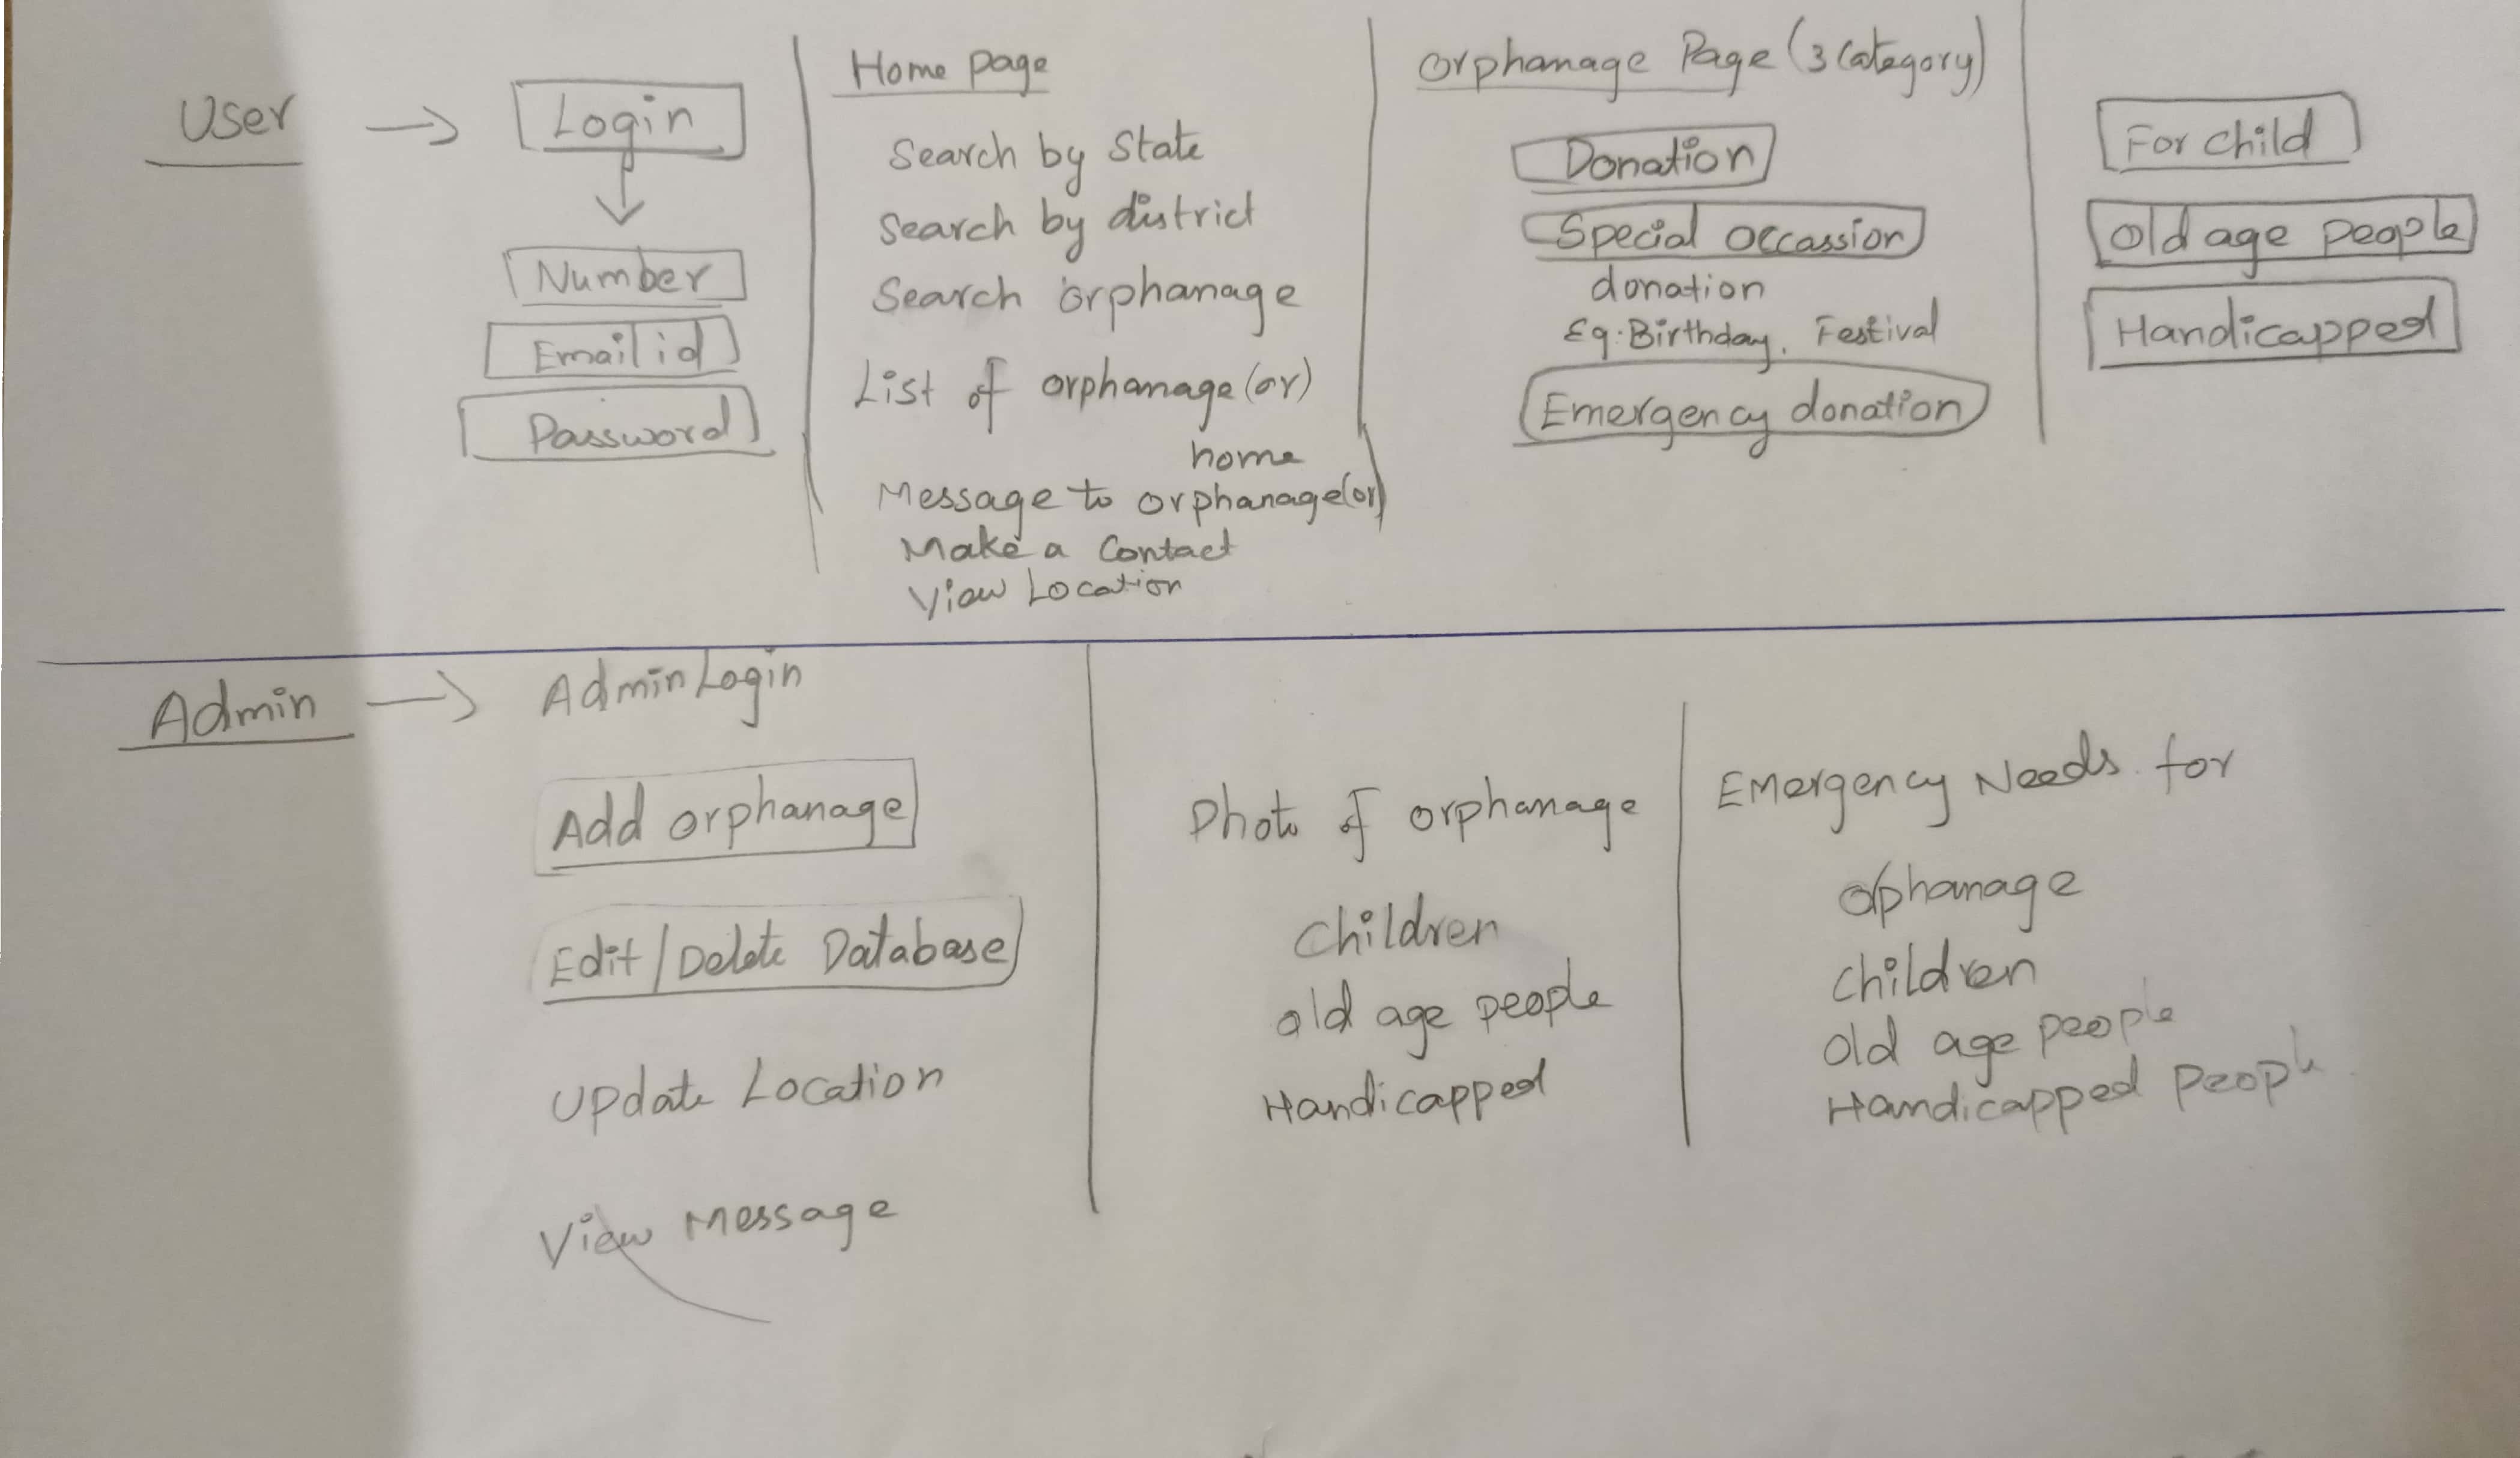 User
Login
Number
Email id
Password
Home page
Search by State
Search by district
Search orphanage
List of orphanage (or)
home
Message to orphanage (or)
Make a Contact
View Location
Orphanage Page (3 Category)
Donation
Special Occassion
donation
Eg. Birthday, Festival
Emergency donation
For Child
Old age people
Handicapped
Admin
Admin Login
Add orphanage
Edit / Delete Database
Update Location
View Message
Photo of orphanage
Children
old age people
Handicapped
Emergency Needs for
Orphanage
Children
Old age people
Handicapped People